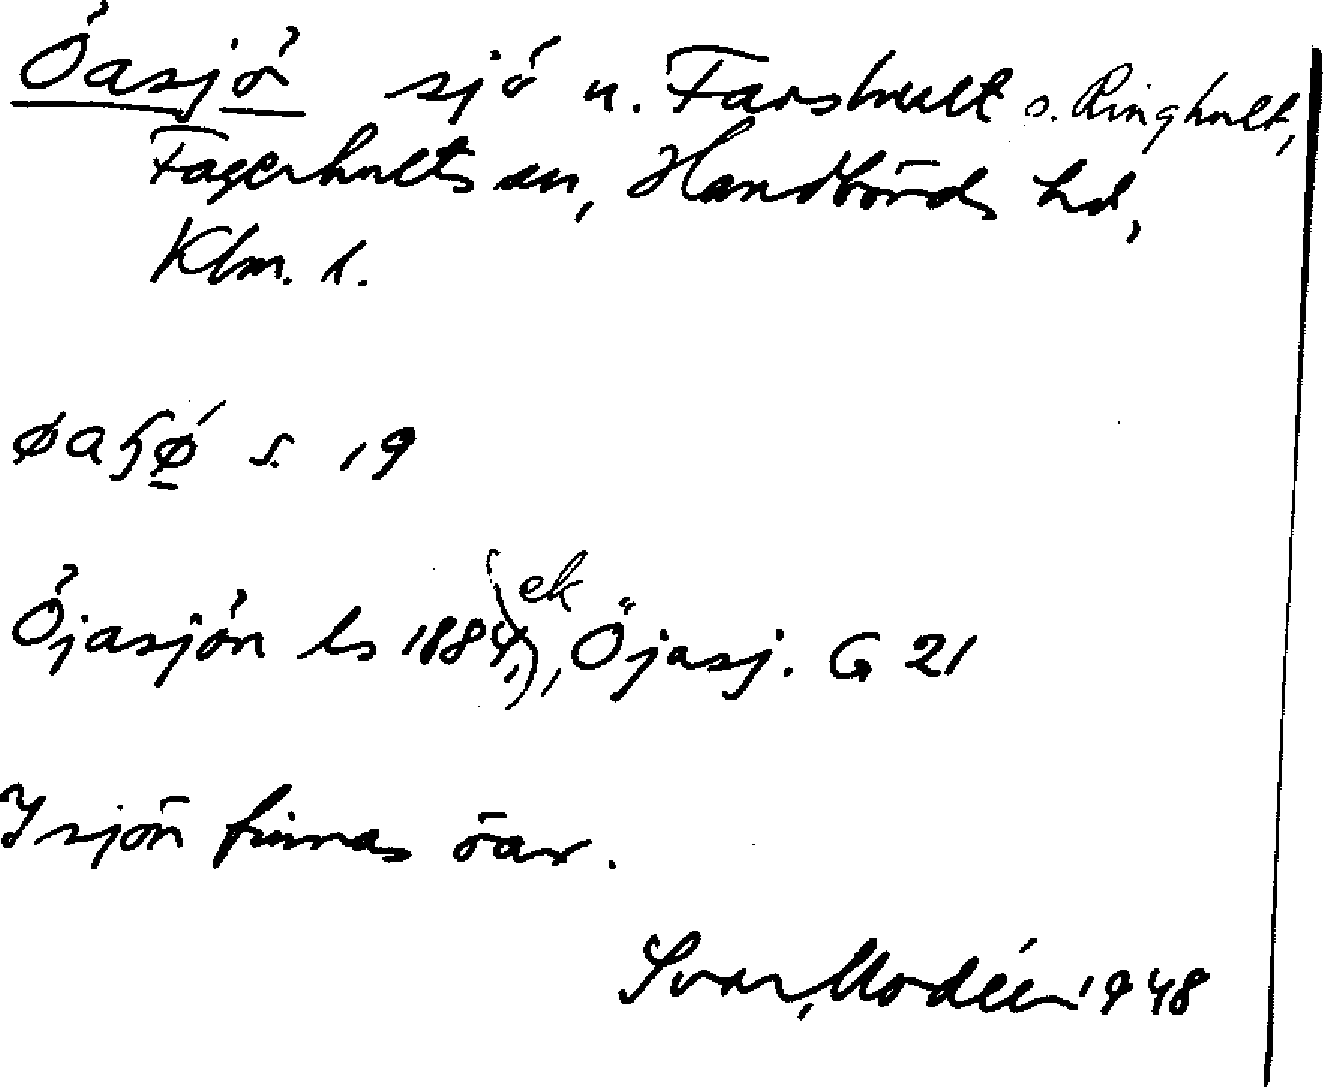 Öasjö sjö n. Farshult o. Ringhult,
Fagerhults sn, Handbörds hd,
Klm. l.
øaɧø s. 19
Öjasjön ls 1884, ek, Öjasj. G 21
I sjön finnas öar.
Ivar Modéer 1948